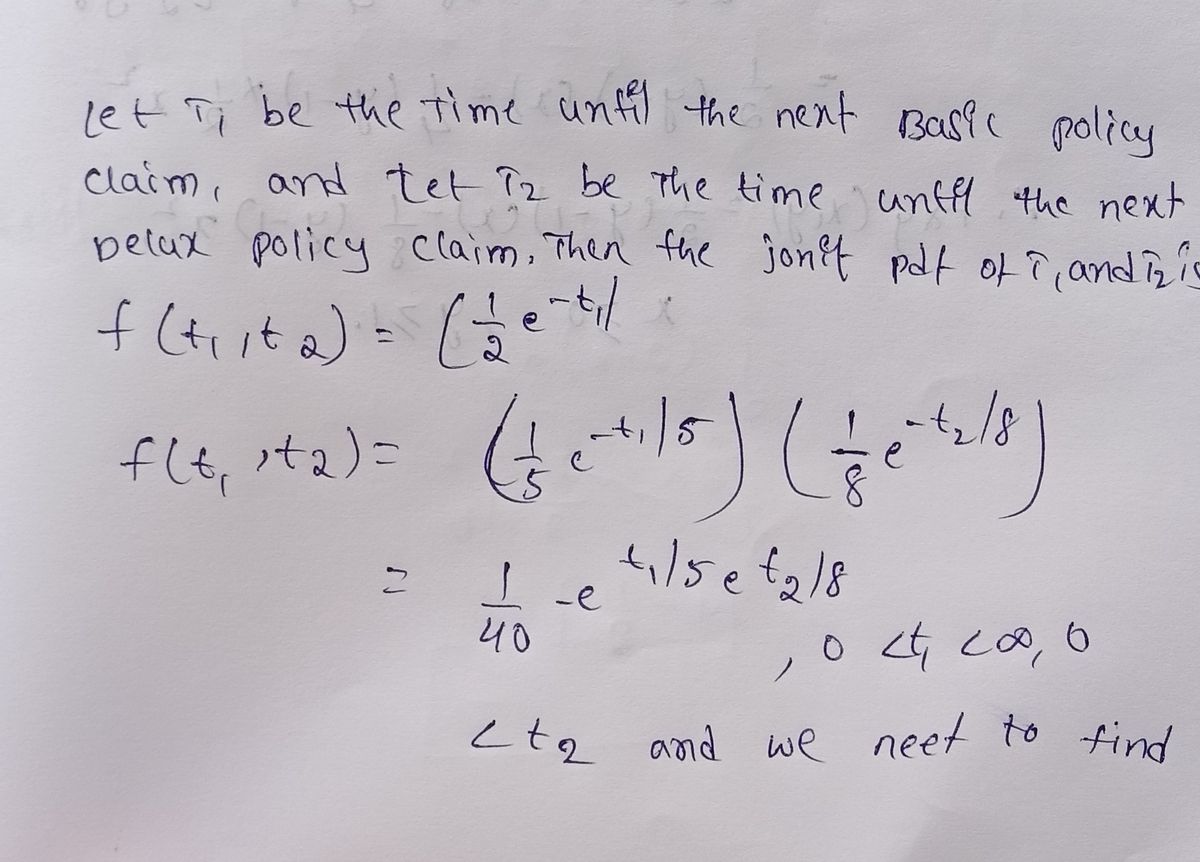 Let T₁ be the Time until the next Basic policy
claim, and let T₂ be the time until the next
Delux policy claim. Then the jonit pdf of T₁ and T₂ is
f(t₁, t₂) = (1/2 e^-t₁/
f(t₁, t₂) = (1/5 e^-t₁/5) (1/8 e^-t₂/8)
= 1/40 -e t₁/5 e t₂/8
, 0 < t₁ < ∞, 0
< t₂ and we neet to find